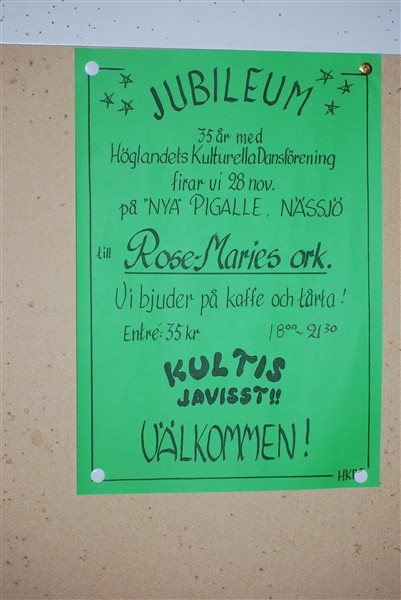 JUBILEUM
35 år med
Höglandets Kulturella Dansförening
firar vi 28 nov.
på "NYA" PIGALLE, NÄSSJÖ
till Rose-Maries ork.
Vi bjuder på kaffe och tårta!
Entré: 35 kr 18⁰⁰-21³⁰
KULTIS
JAVISST!!
VÄLKOMMEN!